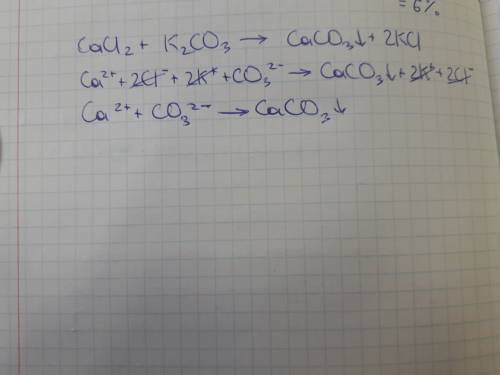 = 6%
CaCl₂ + K₂CO₃ → CaCO₃↓ + 2KCl
Ca²⁺ + 2Cl⁻ + 2K⁺ + CO₃²⁻ → CaCO₃↓ + 2K⁺ + 2Cl⁻
Ca²⁺ + CO₃²⁻ → CaCO₃↓